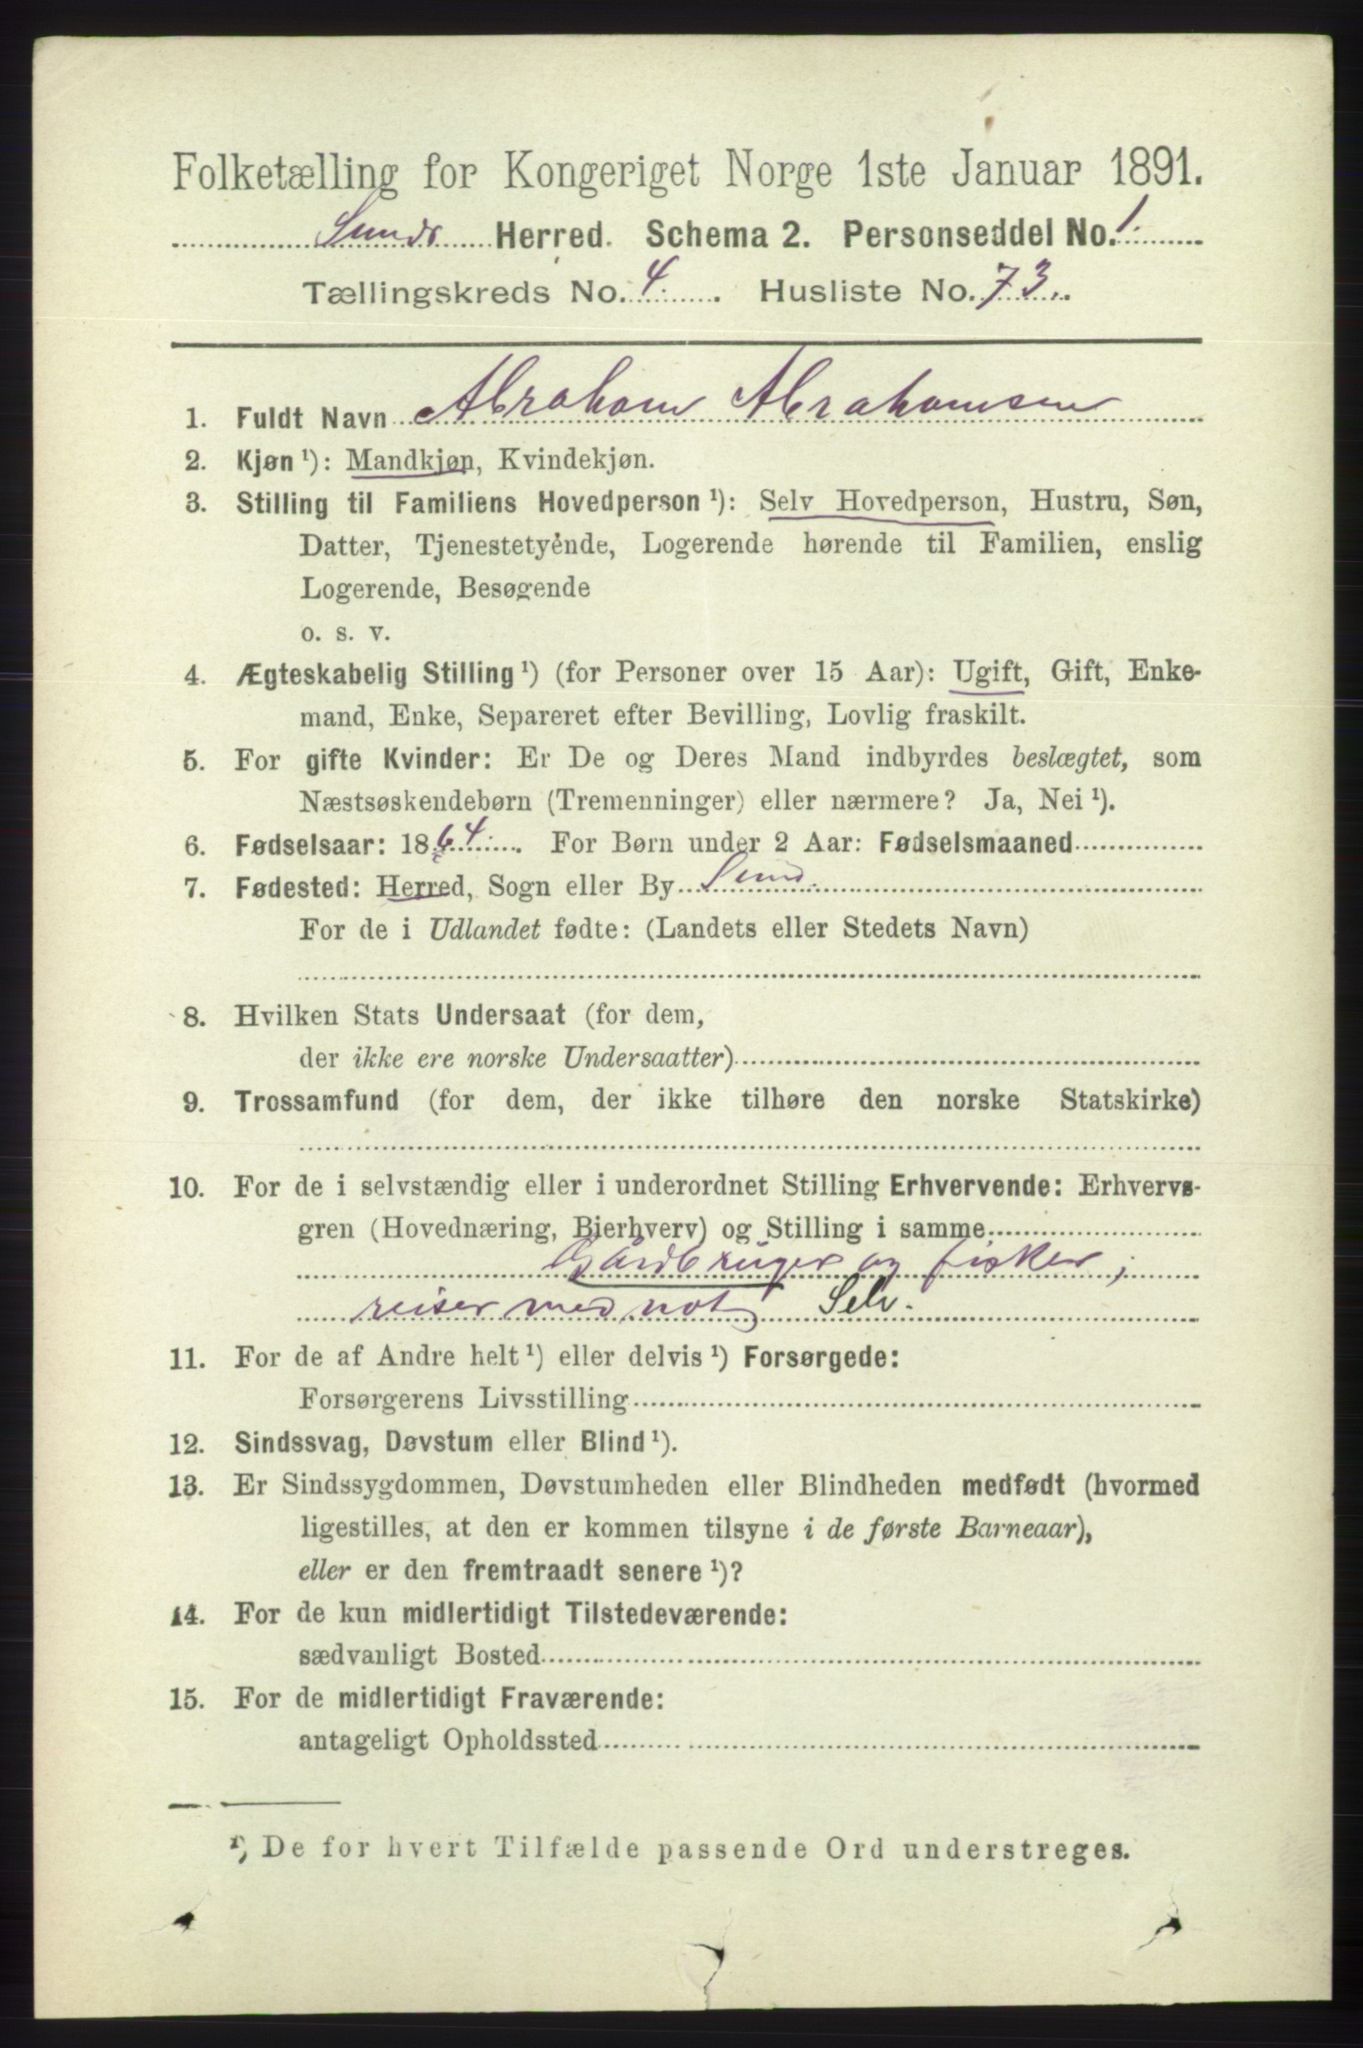 Folketælling for Kongeriget Norge 1ste Januar 1891.
Sunds Herred. Schema 2. Personseddel No. 1.
Tællingskreds No. 4. Husliste No. 73.
1. Fuldt Navn Abraham Abrahamsen
2. Kjøn ¹): Mandkjøn, Kvindekjøn.
3. Stilling til Familiens Hovedperson ¹): Selv Hovedperson, Hustru, Søn,
Datter, Tjenestetyende, Logerende hørende til Familien, enslig
Logerende, Besøgende
o. s. v.
4. Ægteskabelig Stilling ¹) (for Personer over 15 Aar): Ugift, Gift, Enke-
mand, Enke, Separeret efter Bevilling, Lovlig fraskilt.
5. For gifte Kvinder: Er De og Deres Mand indbyrdes beslægtet, som
Næstsøskendebørn (Tremenninger) eller nærmere? Ja, Nei ¹).
6. Fødselsaar: 1864. For Børn under 2 Aar: Fødselsmaaned
7. Fødested: Herred, Sogn eller By Sund.
For de i Udlandet fødte: (Landets eller Stedets Navn)
8. Hvilken Stats Undersaat (for dem,
der ikke ere norske Undersaatter)
9. Trossamfund (for dem, der ikke tilhøre den norske Statskirke)
10. For de i selvstændig eller i underordnet Stilling Erhvervende: Erhvervs-
gren (Hovednæring, Bierhverv) og Stilling i samme
Gårdbruger og fisker,
reiser med not Selv.
11. For de af Andre helt ¹) eller delvis ¹) Forsørgede:
Forsørgerens Livsstilling
12. Sindssvag, Døvstum eller Blind ¹).
13. Er Sindssygdommen, Døvstumheden eller Blindheden medfødt (hvormed
ligestilles, at den er kommen tilsyne i de første Barneaar),
eller er den fremtraadt senere ¹)?
14. For de kun midlertidigt Tilstedeværende:
sædvanligt Bosted
15. For de midlertidigt Fraværende:
antageligt Opholdssted
¹) De for hvert Tilfælde passende Ord understreges.